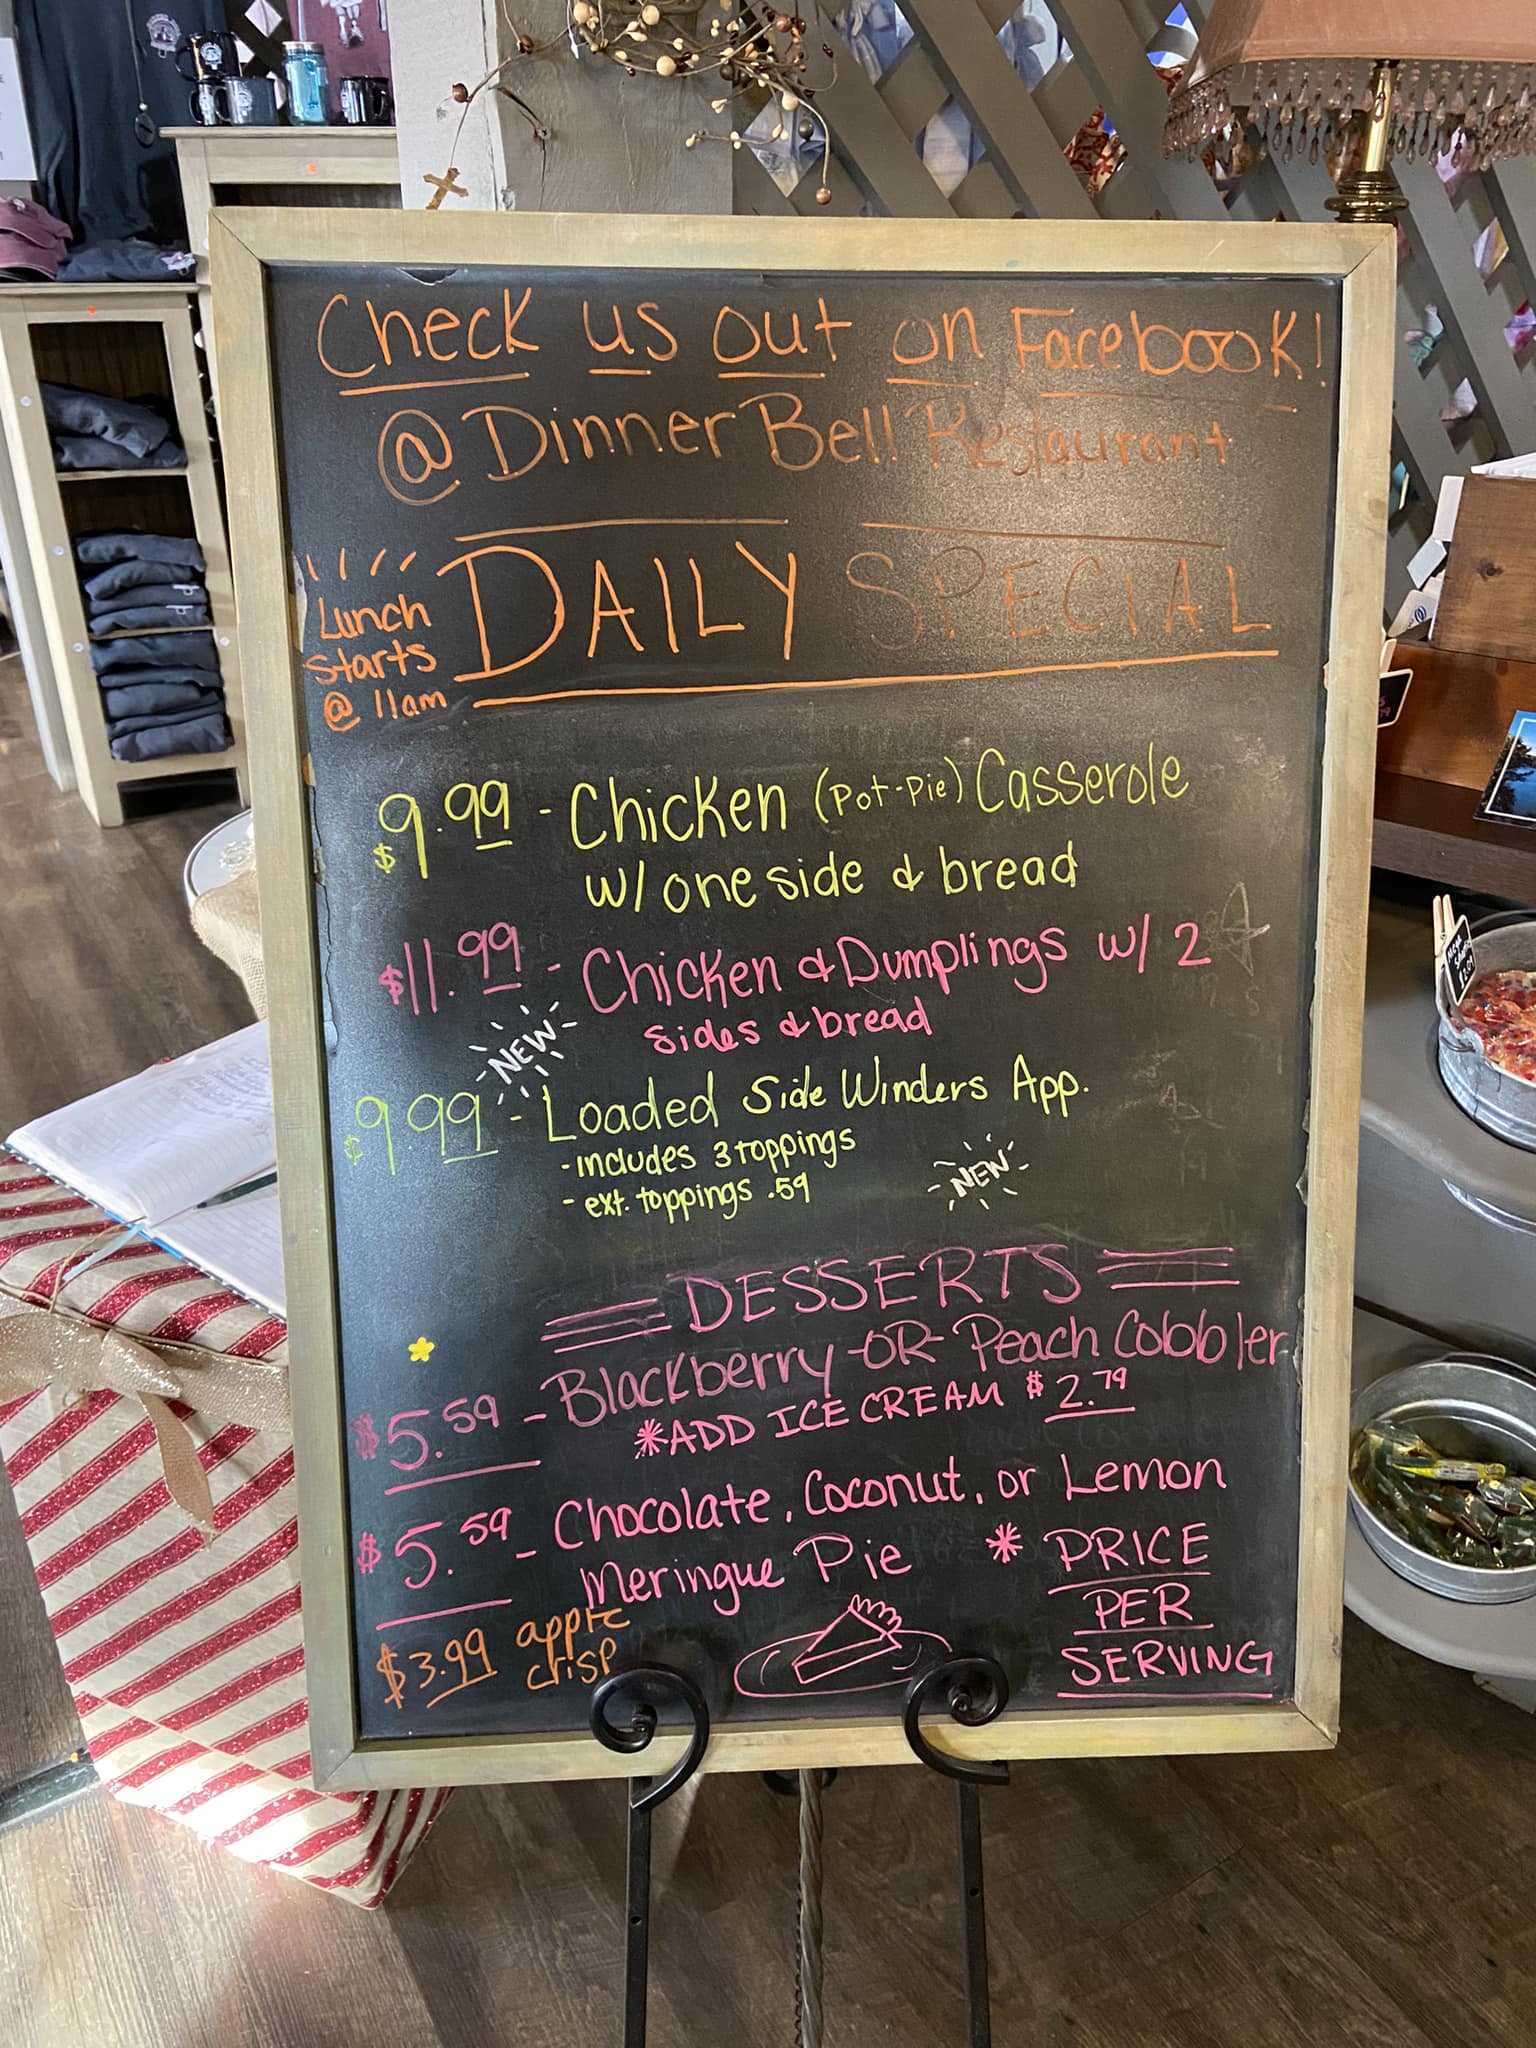 Check us out on Facebook!
@ Dinner Bell Restaurant
Lunch
starts
@ 11am
DAILY SPECIAL
$9.99 - Chicken (Pot-Pie) Casserole
w/ one side & bread
$11.99 - Chicken & Dumplings w/ 2
sides & bread
NEW
$9.99 - Loaded Side Winders App.
- includes 3 toppings
- ext. toppings .59
NEW
DESSERTS
$5.59 - Blackberry -OR- Peach Cobbler
*ADD ICE CREAM $2.79
$5.59 - Chocolate, Coconut, or Lemon
Meringue Pie
* PRICE
PER
SERVING
$3.99 apple
crisp